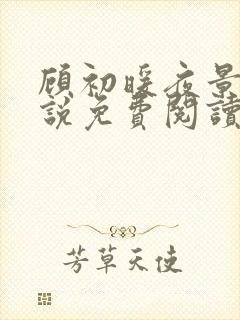 顾初暖夜景
說免費閱讀
芳草天使